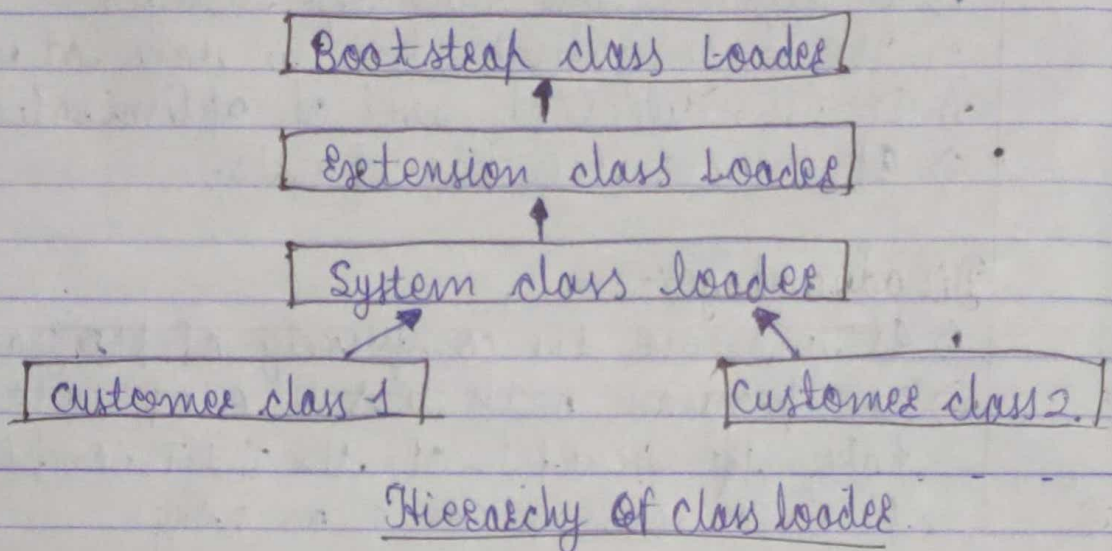 Bootstrap class Loader
Extension class Loader
System class loader
customer class 1
Customer class 2.
Hierarchy Of class loader.